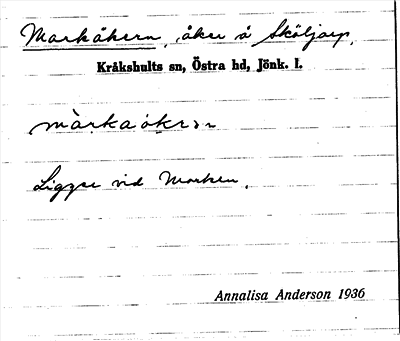 Markåkern, åker å Sköljarp,
Kråkshults sn, Östra hd, Jönk. l.
màrkaòkɜn
Ligger vid Marken.
Annalisa Anderson 1936